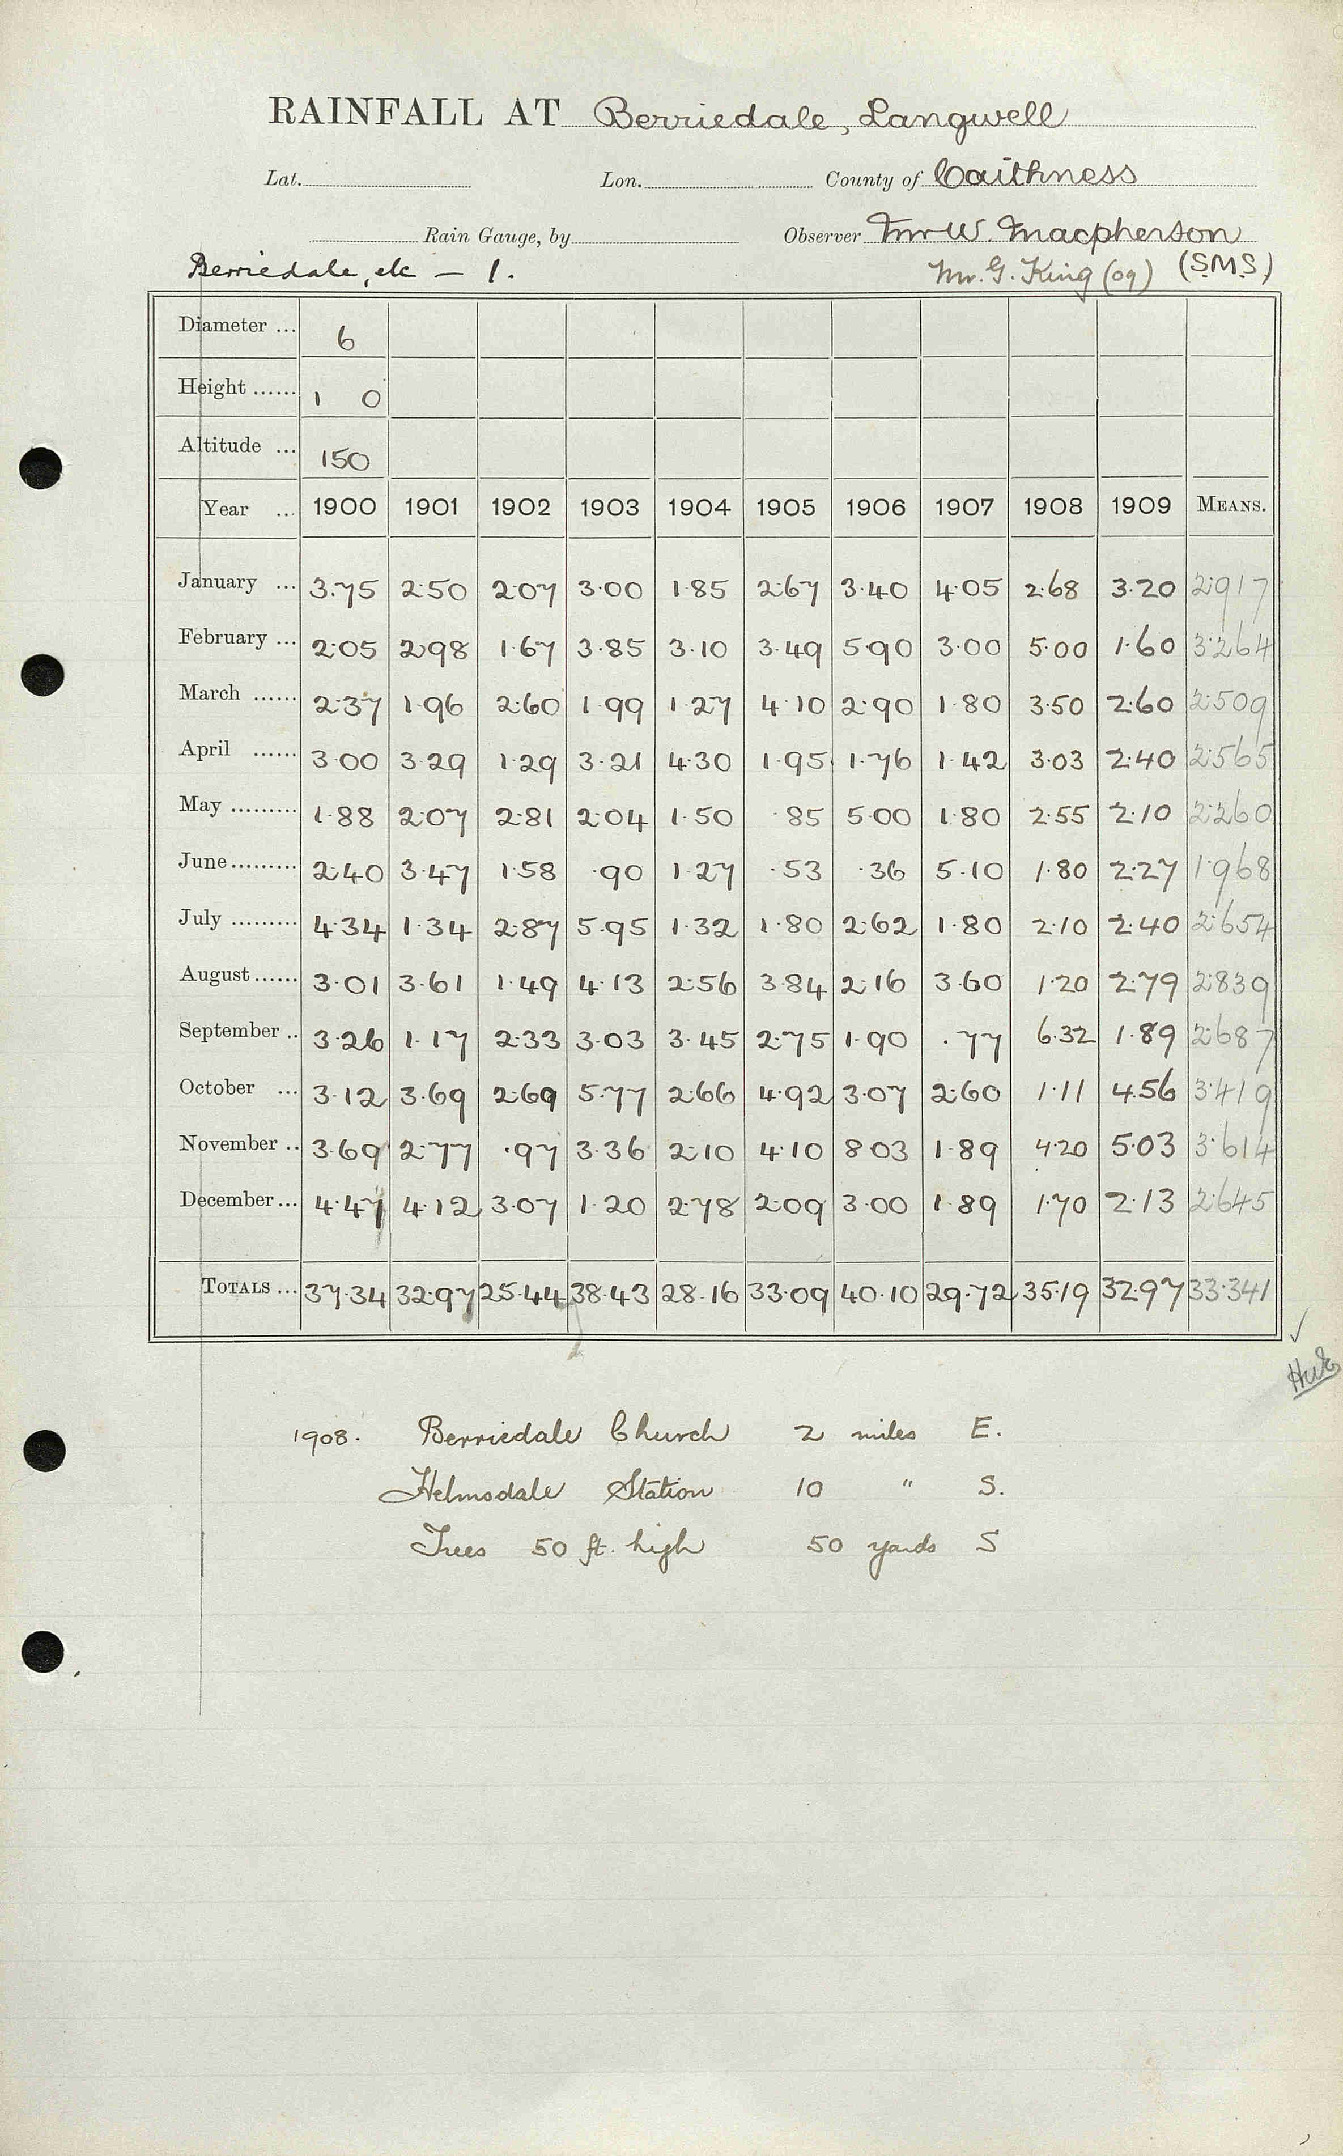 RAINFALL AT Berriedale, Langwell
Lat. Lon. County of Caithness
Rain Gauge, by Observer Mr W. Macpherson
Berriedale, etc — 1. Mr. G. King (09) (S.M.S)
Diameter ... 6
Height ...... 1 0
Altitude ... 150
Year ... 1900 1901 1902 1903 1904 1905 1906 1907 1908 1909 MEANS.
January ... 3.75 2.50 2.07 3.00 1.85 2.67 3.40 4.05 2.68 3.20 2.917
February ... 2.05 2.98 1.67 3.85 3.10 3.49 5.90 3.00 5.00 1.60 3.264
March ...... 2.37 1.96 2.60 1.99 1.27 4.10 2.90 1.80 3.50 2.60 2.509
April ...... 3.00 3.29 1.29 3.21 4.30 1.95 1.76 1.42 3.03 2.40 2.565
May ......... 1.88 2.07 2.81 2.04 1.50 .85 5.00 1.80 2.55 2.10 2.260
June ......... 2.40 3.47 1.58 .90 1.27 .53 .36 5.10 1.80 2.27 1.968
July ......... 4.34 1.34 2.87 5.95 1.32 1.80 2.62 1.80 2.10 2.40 2.654
August ...... 3.01 3.61 1.49 4.13 2.56 3.84 2.16 3.60 1.20 2.79 2.839
September .. 3.26 1.17 2.33 3.03 3.45 2.75 1.90 .77 6.32 1.89 2.687
October ... 3.12 3.69 2.69 5.77 2.66 4.92 3.07 2.60 1.11 4.56 3.419
November .. 3.69 2.77 .97 3.36 2.10 4.10 8.03 1.89 4.20 5.03 3.614
December ... 4.47 4.12 3.07 1.20 2.78 2.09 3.00 1.89 1.70 2.13 2.645
TOTALS ... 37.34 32.97 25.44 38.43 28.16 33.09 40.10 29.72 35.19 32.97 33.341
1908. Berriedale Church 2 miles E.
Helmsdale Station 10 " S.
Trees 50 ft. high 50 yards S